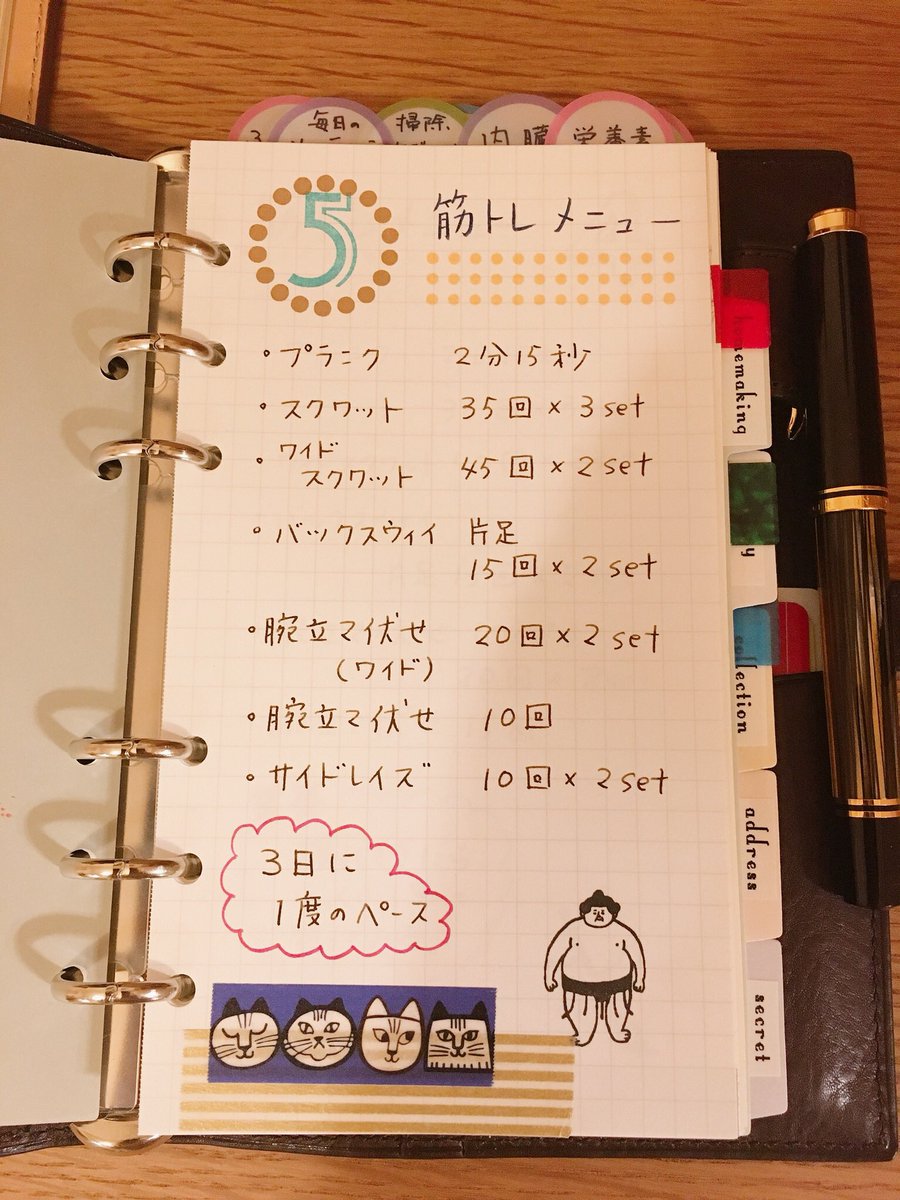 毎日の
掃除、
内臓
栄養素
5
筋トレメニュー
・プランク 2分15秒
・スクワット 35回 × 3set
・ワイド
スクワット 45回 × 2set
・バックスウィイ 片足
15回 × 2set
・腕立マイ伏せ 20回 × 2set
(ワイド)
・腕立マイ伏せ 10回
・サイドレイズ 10回 × 2set
3日に
1度のペース
homemaking
address
secret